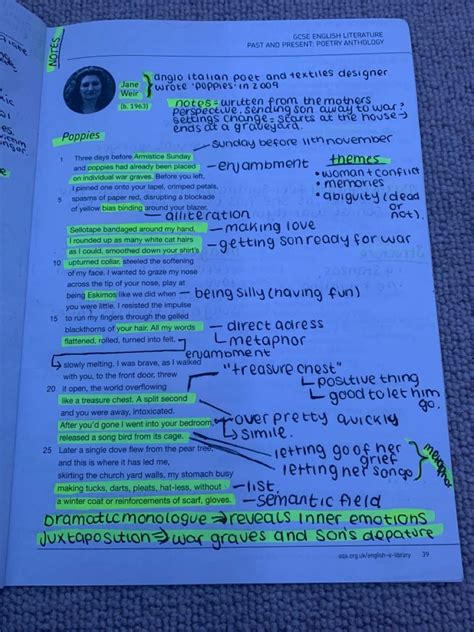 GCSE ENGLISH LITERATURE
PAST AND PRESENT: POETRY ANTHOLOGY
NOTES
Jane
Weir
(b. 1963)
anglo italian poet and textiles designer
wrote 'POPPIES' in 2009
notes = written from the mothers
perspective. sending son away to war?
settings change = starts at the house →
ends at a graveyard.
Poppies
sunday before 11th november
1 Three days before Armistice Sunday
and poppies had already been placed
on individual war graves. Before you left,
I pinned one onto your lapel, crimped petals,
5 spasms of paper red, disrupting a blockade
of yellow bias binding around your blazer.
enjambment
themes
• woman + conflict
• memories
• abiguity (dead
or
not).
alliteration
Sellotape bandaged around my hand,
I rounded up as many white cat hairs
as I could, smoothed down your shirt's
10 upturned collar, steeled the softening
of my face. I wanted to graze my nose
across the tip of your nose, play at
being Eskimos like we did when
you were little. I resisted the impulse
15 to run my fingers through the gelled
blackthorns of your hair. All my words
flattened, rolled, turned into felt,
making love
getting son ready for war
being silly (having fun)
direct adress
metaphor
enjambment
slowly melting. I was brave, as I walked
with you, to the front door, threw
20 it open, the world overflowing
like a treasure chest. A split second
and you were away, intoxicated.
After you'd gone I went into your bedroom,
released a song bird from its cage.
25 Later a single dove flew from the pear tree,
and this is where it has led me,
skirting the church yard walls, my stomach busy
making tucks, darts, pleats, hat-less, without
a winter coat or reinforcements of scarf, gloves.
"treasure chest"
positive thing
good to let him
go.
over pretty quickly
simile.
letting go of her
grief
letting her son go
metaphor
list
semantic field
Dramatic monologue ⇒ reveals inner emotions
Juxtaposition ⇒ war graves and son's depature
aqa.org.uk/english-e-library
39